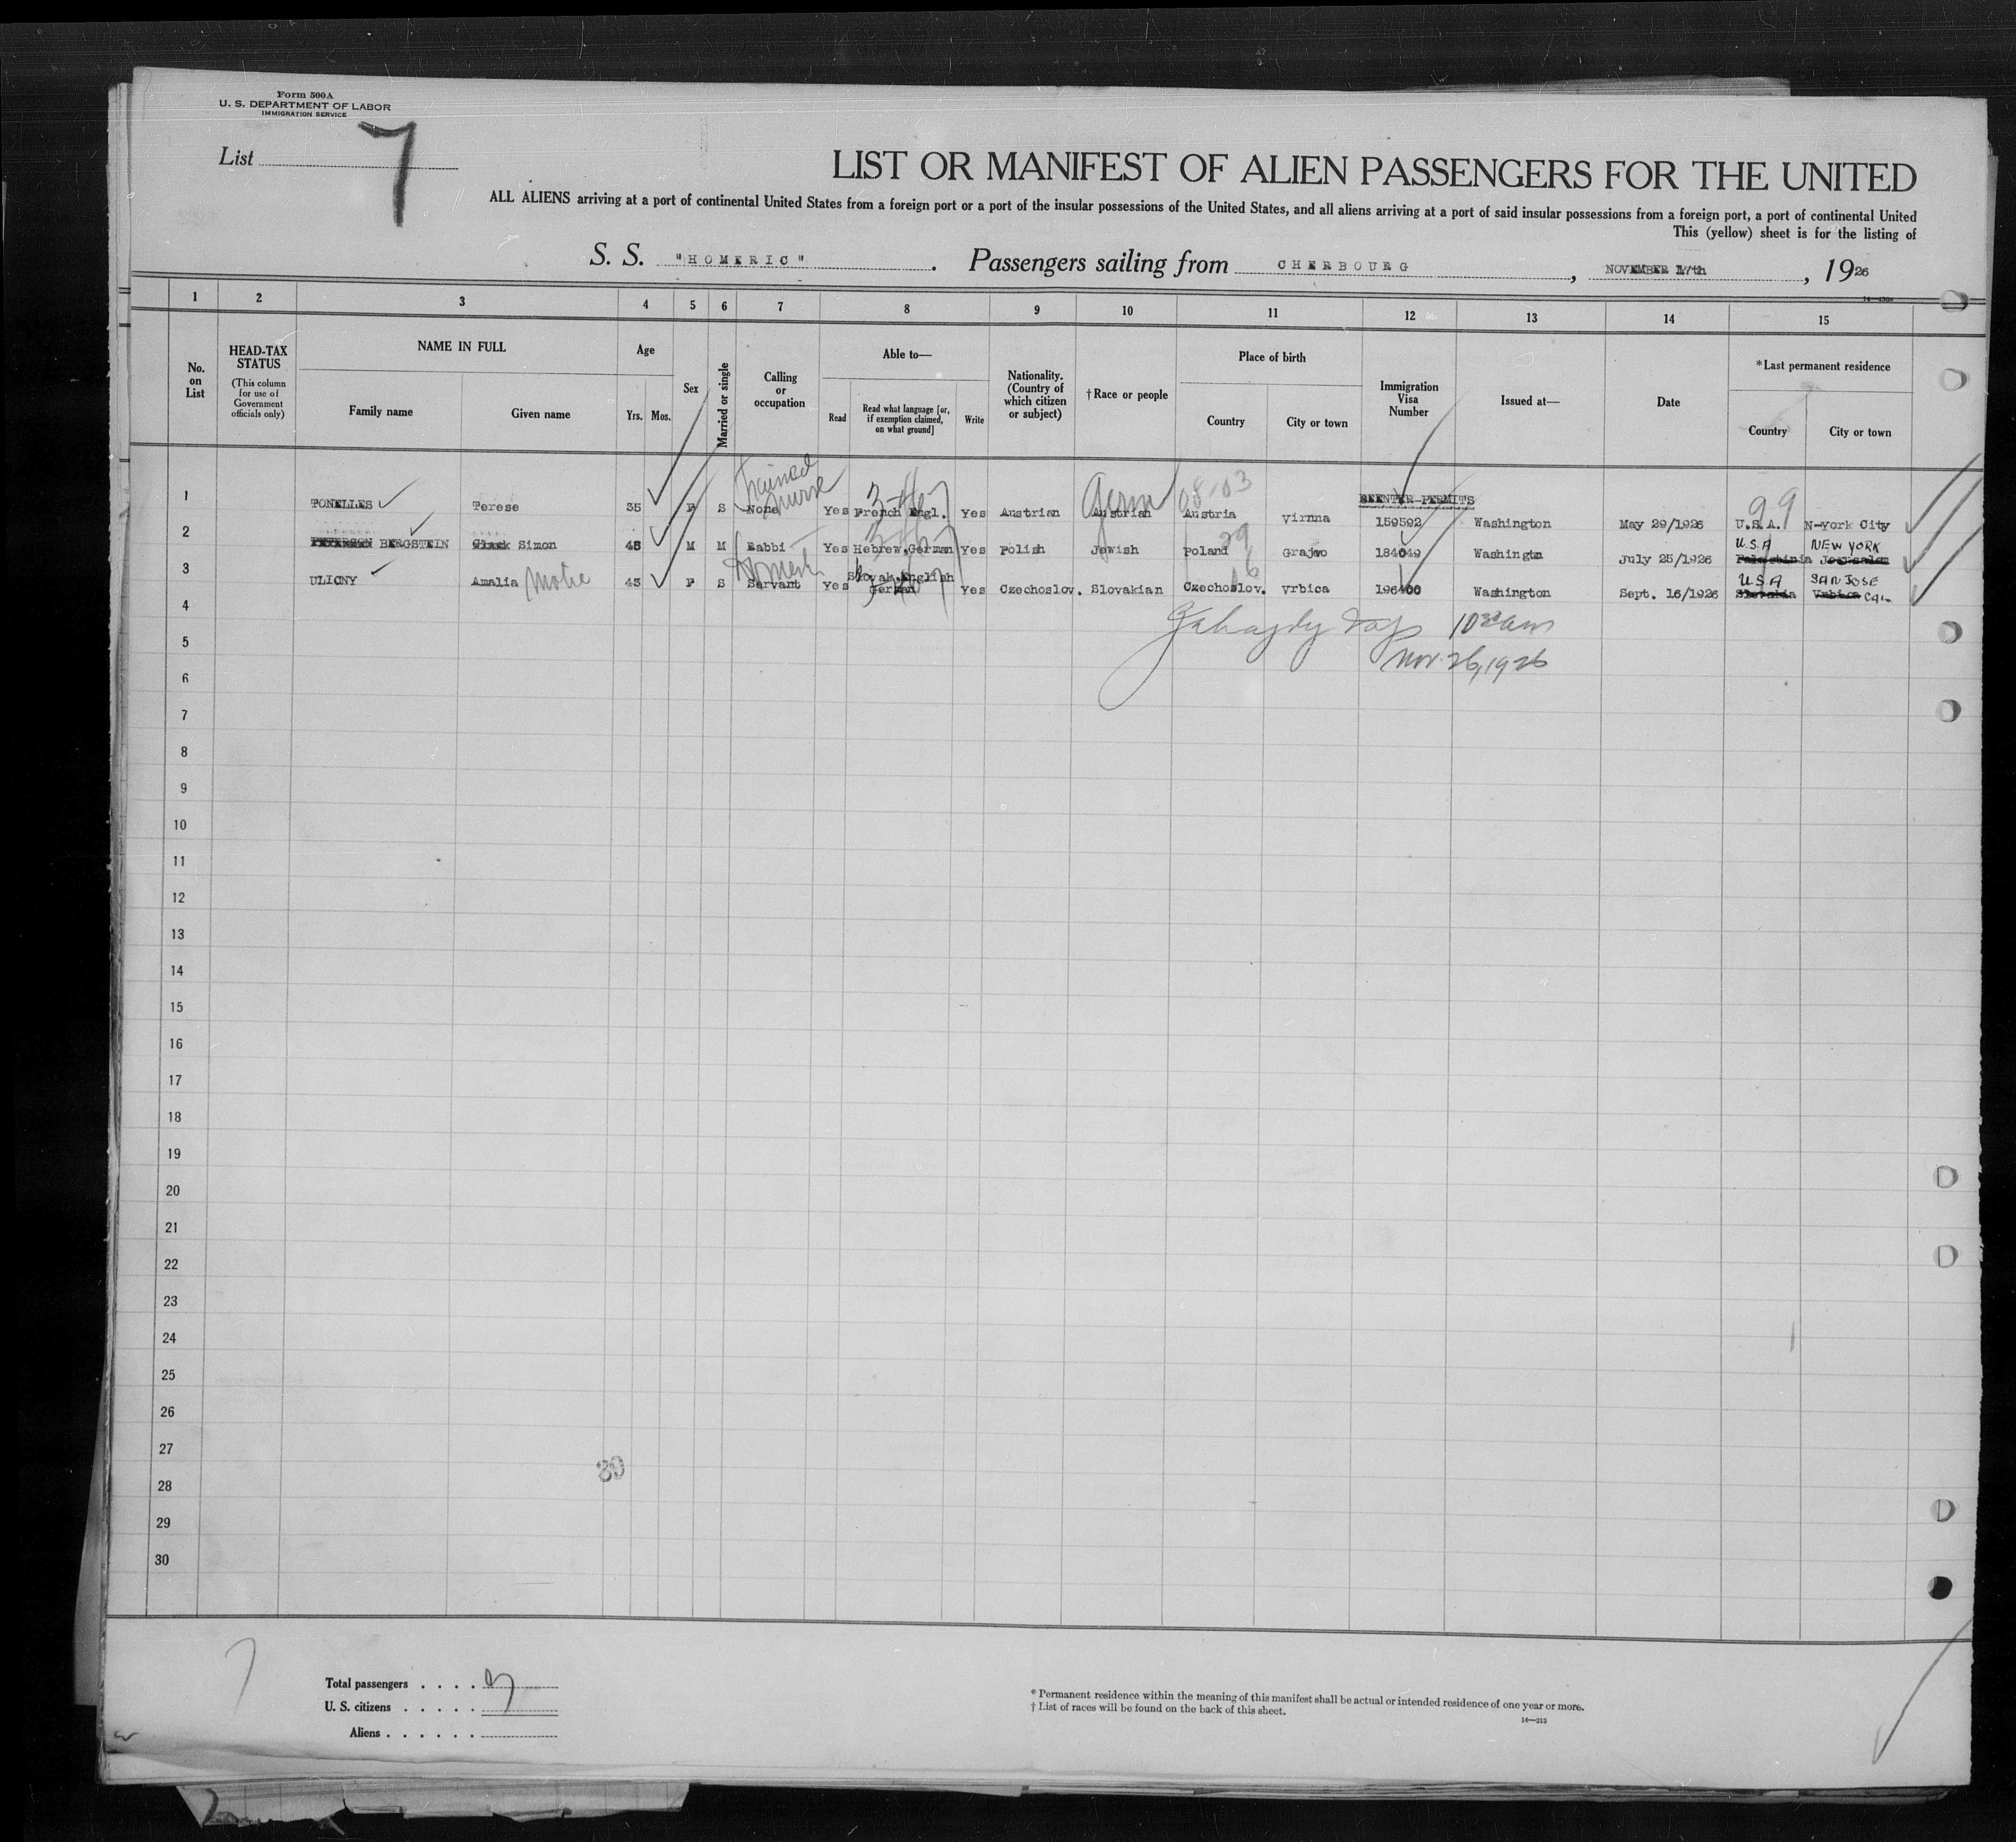 Form 500A
U. S. DEPARTMENT OF LABOR
IMMIGRATION SERVICE
List 7
LIST OR MANIFEST OF ALIEN PASSENGERS FOR THE UNITED
ALL ALIENS arriving at a port of continental United States from a foreign port or a port of the insular possessions of the United States, and all aliens arriving at a port of said insular possessions from a foreign port, a port of continental United
This (yellow) sheet is for the listing of
S. S. "HOMERIC". Passengers sailing from CHERBOURG, NOVEMBER 17th, 1926
1 2 3 4 5 6 7 8 9 10 11 12 13 14 15
No. on List
HEAD-TAX STATUS
(This column for use of Government officials only)
NAME IN FULL
Family name
Given name
Age
Yrs. Mos.
Sex
Married or single
Calling or occupation
Able to—
Read
Read what language [or, if exemption claimed, on what ground]
Write
Nationality. (Country of which citizen or subject)
†Race or people
Place of birth
Country
City or town
Immigration Visa Number
Issued at—
Date
*Last permanent residence
Country
City or town
REENTER-PERMITS
trained nurse
Germ
08-03
99
1 TONELLES Terese 35 F S None Yes French Engl. Yes Austrian Austrian Austria Virnna 159592 Washington May 29/1926 U.S.A. N-york City
29
U.S.A NEW YORK
2 PETERSON BERGSTEIN Simon M M Rabbi Yes Hebrew,German Yes Polish Jewish Poland Grajwo 184049 Washingtn July 25/1926 Palestinia Jerusalem
U.S.A SAN JOSE
3 ULICNY Amalia 43 F S Servant Yes Slovak,English German Yes Czechoslov. Slovakian Czechoslov. Vrbica 196400 Washington Sept. 16/1926 Slovakia Vrbica Cal
Nov. 26, 1926
4
5
6
7
8
9
10
11
12
13
14
15
16
17
18
19
20
21
22
23
24
25
26
27
28
29
30
39
7
Total passengers . . . .
U. S. citizens . . . . .
Aliens . . . . . .
* Permanent residence within the meaning of this manifest shall be actual or intended residence of one year or more.
† List of races will be found on the back of this sheet.
14—213